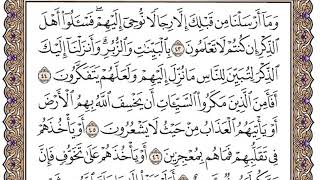 وَمَآ أَرْسَلْنَا مِن قَبْلِكَ إِلَّا رِجَالًا نُّوحِىٓ إِلَيْهِمْ ۚ فَسْـَٔلُوٓا۟ أَهْلَ
ٱلذِّكْرِ إِن كُنتُمْ لَا تَعْلَمُونَ ٤٣ بِٱلْبَيِّنَٰتِ وَٱلزُّبُرِ ۗ وَأَنزَلْنَآ إِلَيْكَ
ٱلذِّكْرَ لِتُبَيِّنَ لِلنَّاسِ مَا نُزِّلَ إِلَيْهِمْ وَلَعَلَّهُمْ يَتَفَكَّرُونَ ٤٤
أَفَأَمِنَ ٱلَّذِينَ مَكَرُوا۟ ٱلسَّيِّـَٔاتِ أَن يَخْسِفَ ٱللَّهُ بِهِمُ ٱلْأَرْضَ
أَوْ يَأْتِيَهُمُ ٱلْعَذَابُ مِنْ حَيْثُ لَا يَشْعُرُونَ ٤٥ أَوْ يَأْخُذَهُمْ
فِى تَقَلُّبِهِمْ فَمَا هُم بِمُعْجِزِينَ ٤٦ أَوْ يَأْخُذَهُمْ عَلَىٰ تَخَوُّفٍ فَإِنَّ